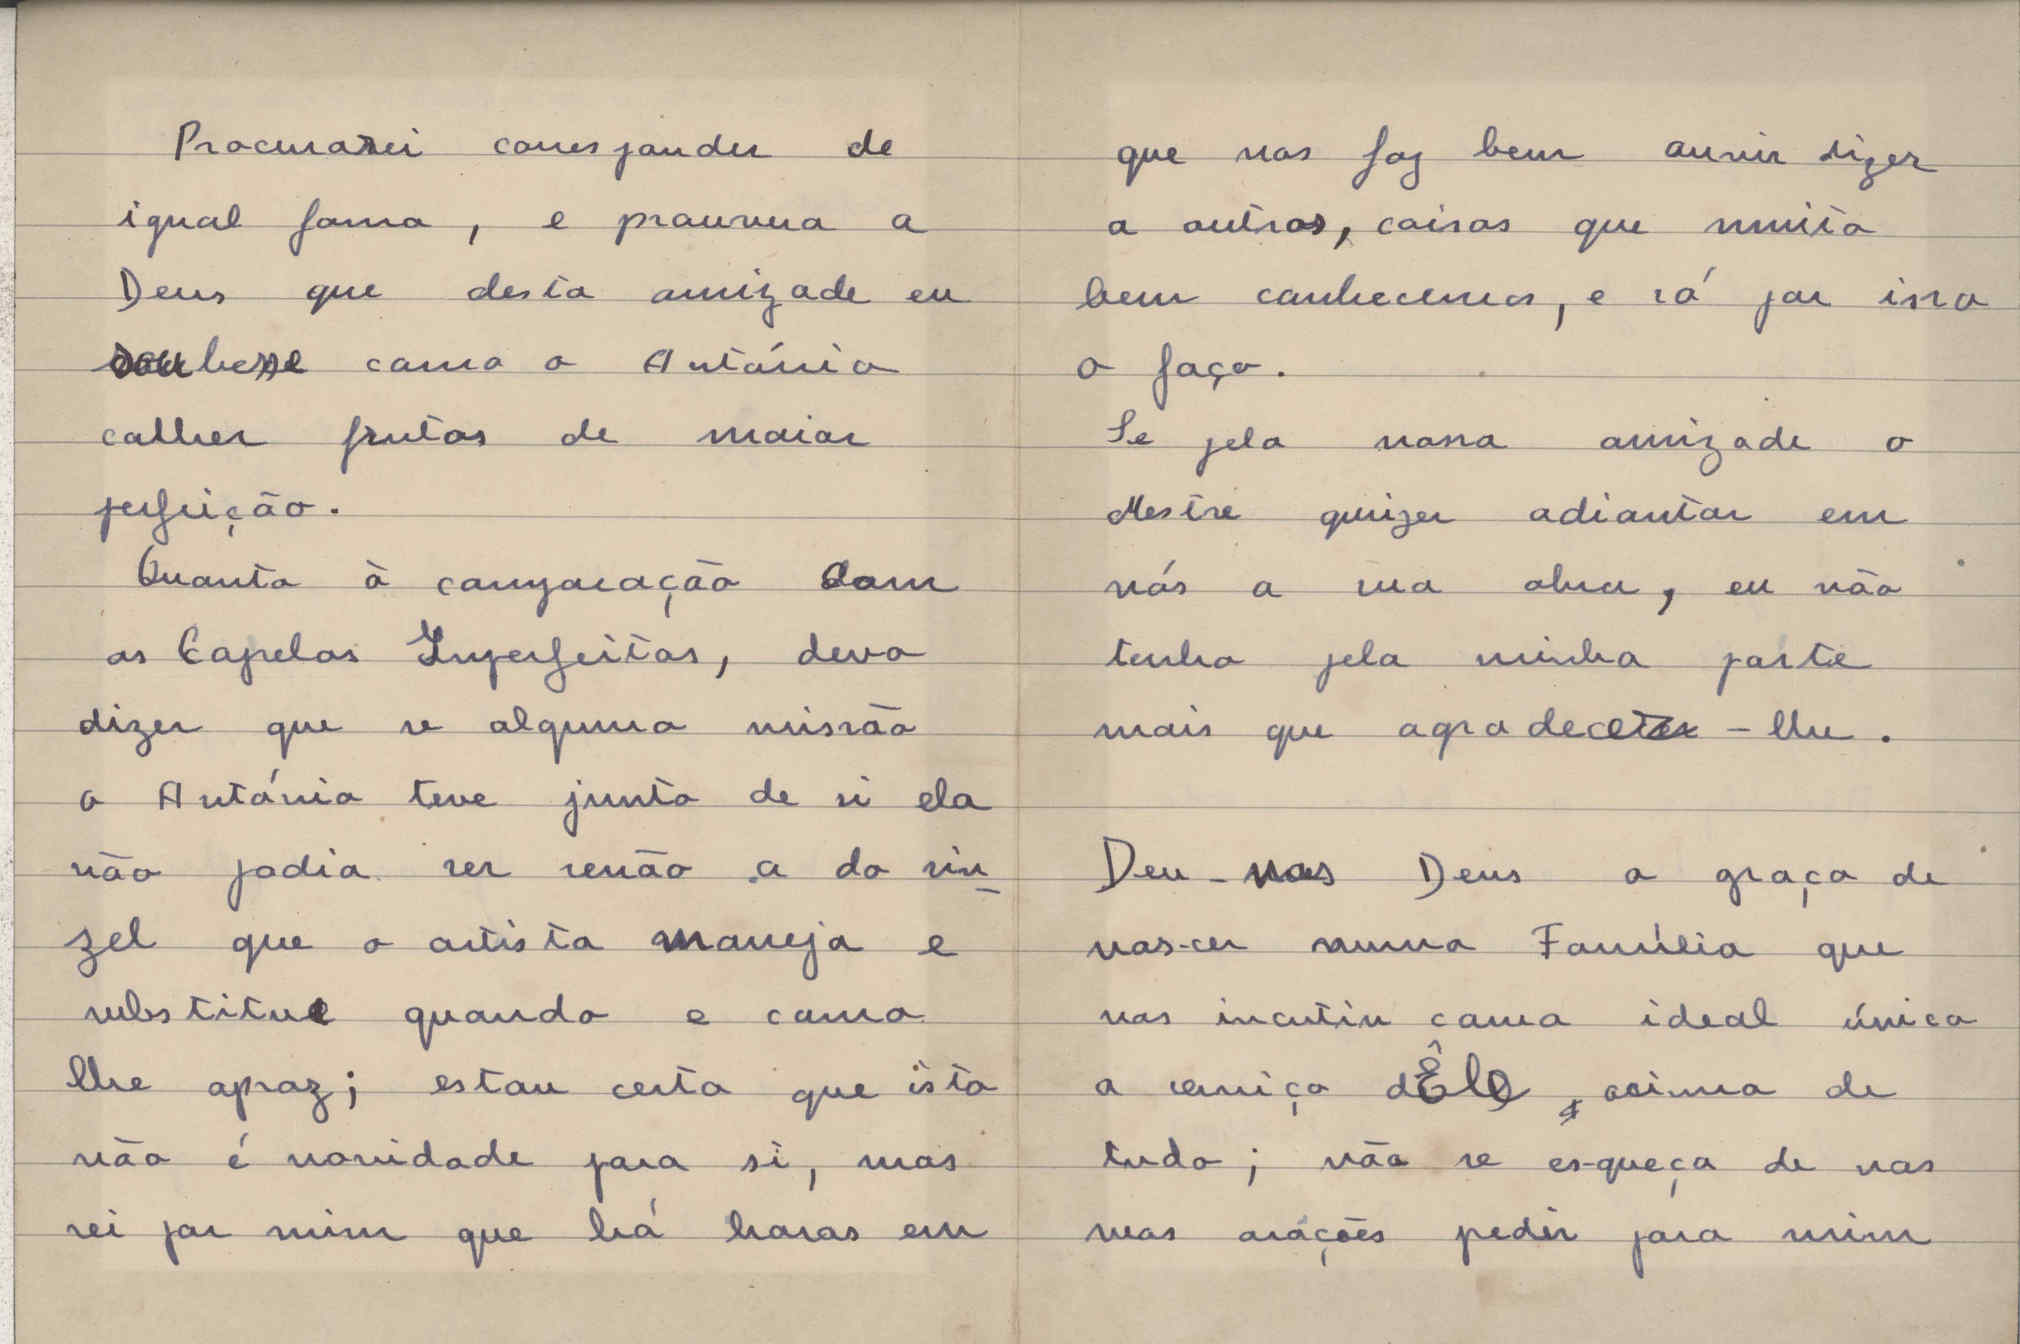 Procurarei corresponder de
igual forma, e prouvera a
Deus que desta amizade eu
soubesse como o António
colher frutos de maior
perfeição.
Quanto à comparação com
as Capelas Imperfeitas, devo
dizer que se alguma missão
o António teve junto de si ela
não podia ser senão a do sin-
zel que o artista maneja e
substitue quando e como
lhe apraz; estou certo que isto
não é novidade para si, mas
sei por mim que há horas em
que nos faz bem ouvir dizer
a outros, coisas que muito
bem conhecemos, e só por isso
o faço.
Se pela nossa amizade o
Mestre quizer adiantar em
nós a sua obra, eu não
tenho pela minha parte
mais que agradecer-lhe.
Deu-nos Deus a graça de
nas-cer numa Família que
nos incutiu como ideal único
o serviço dÊle, acima de
tudo; não se es-queça de nas
suas orações pedir para mim